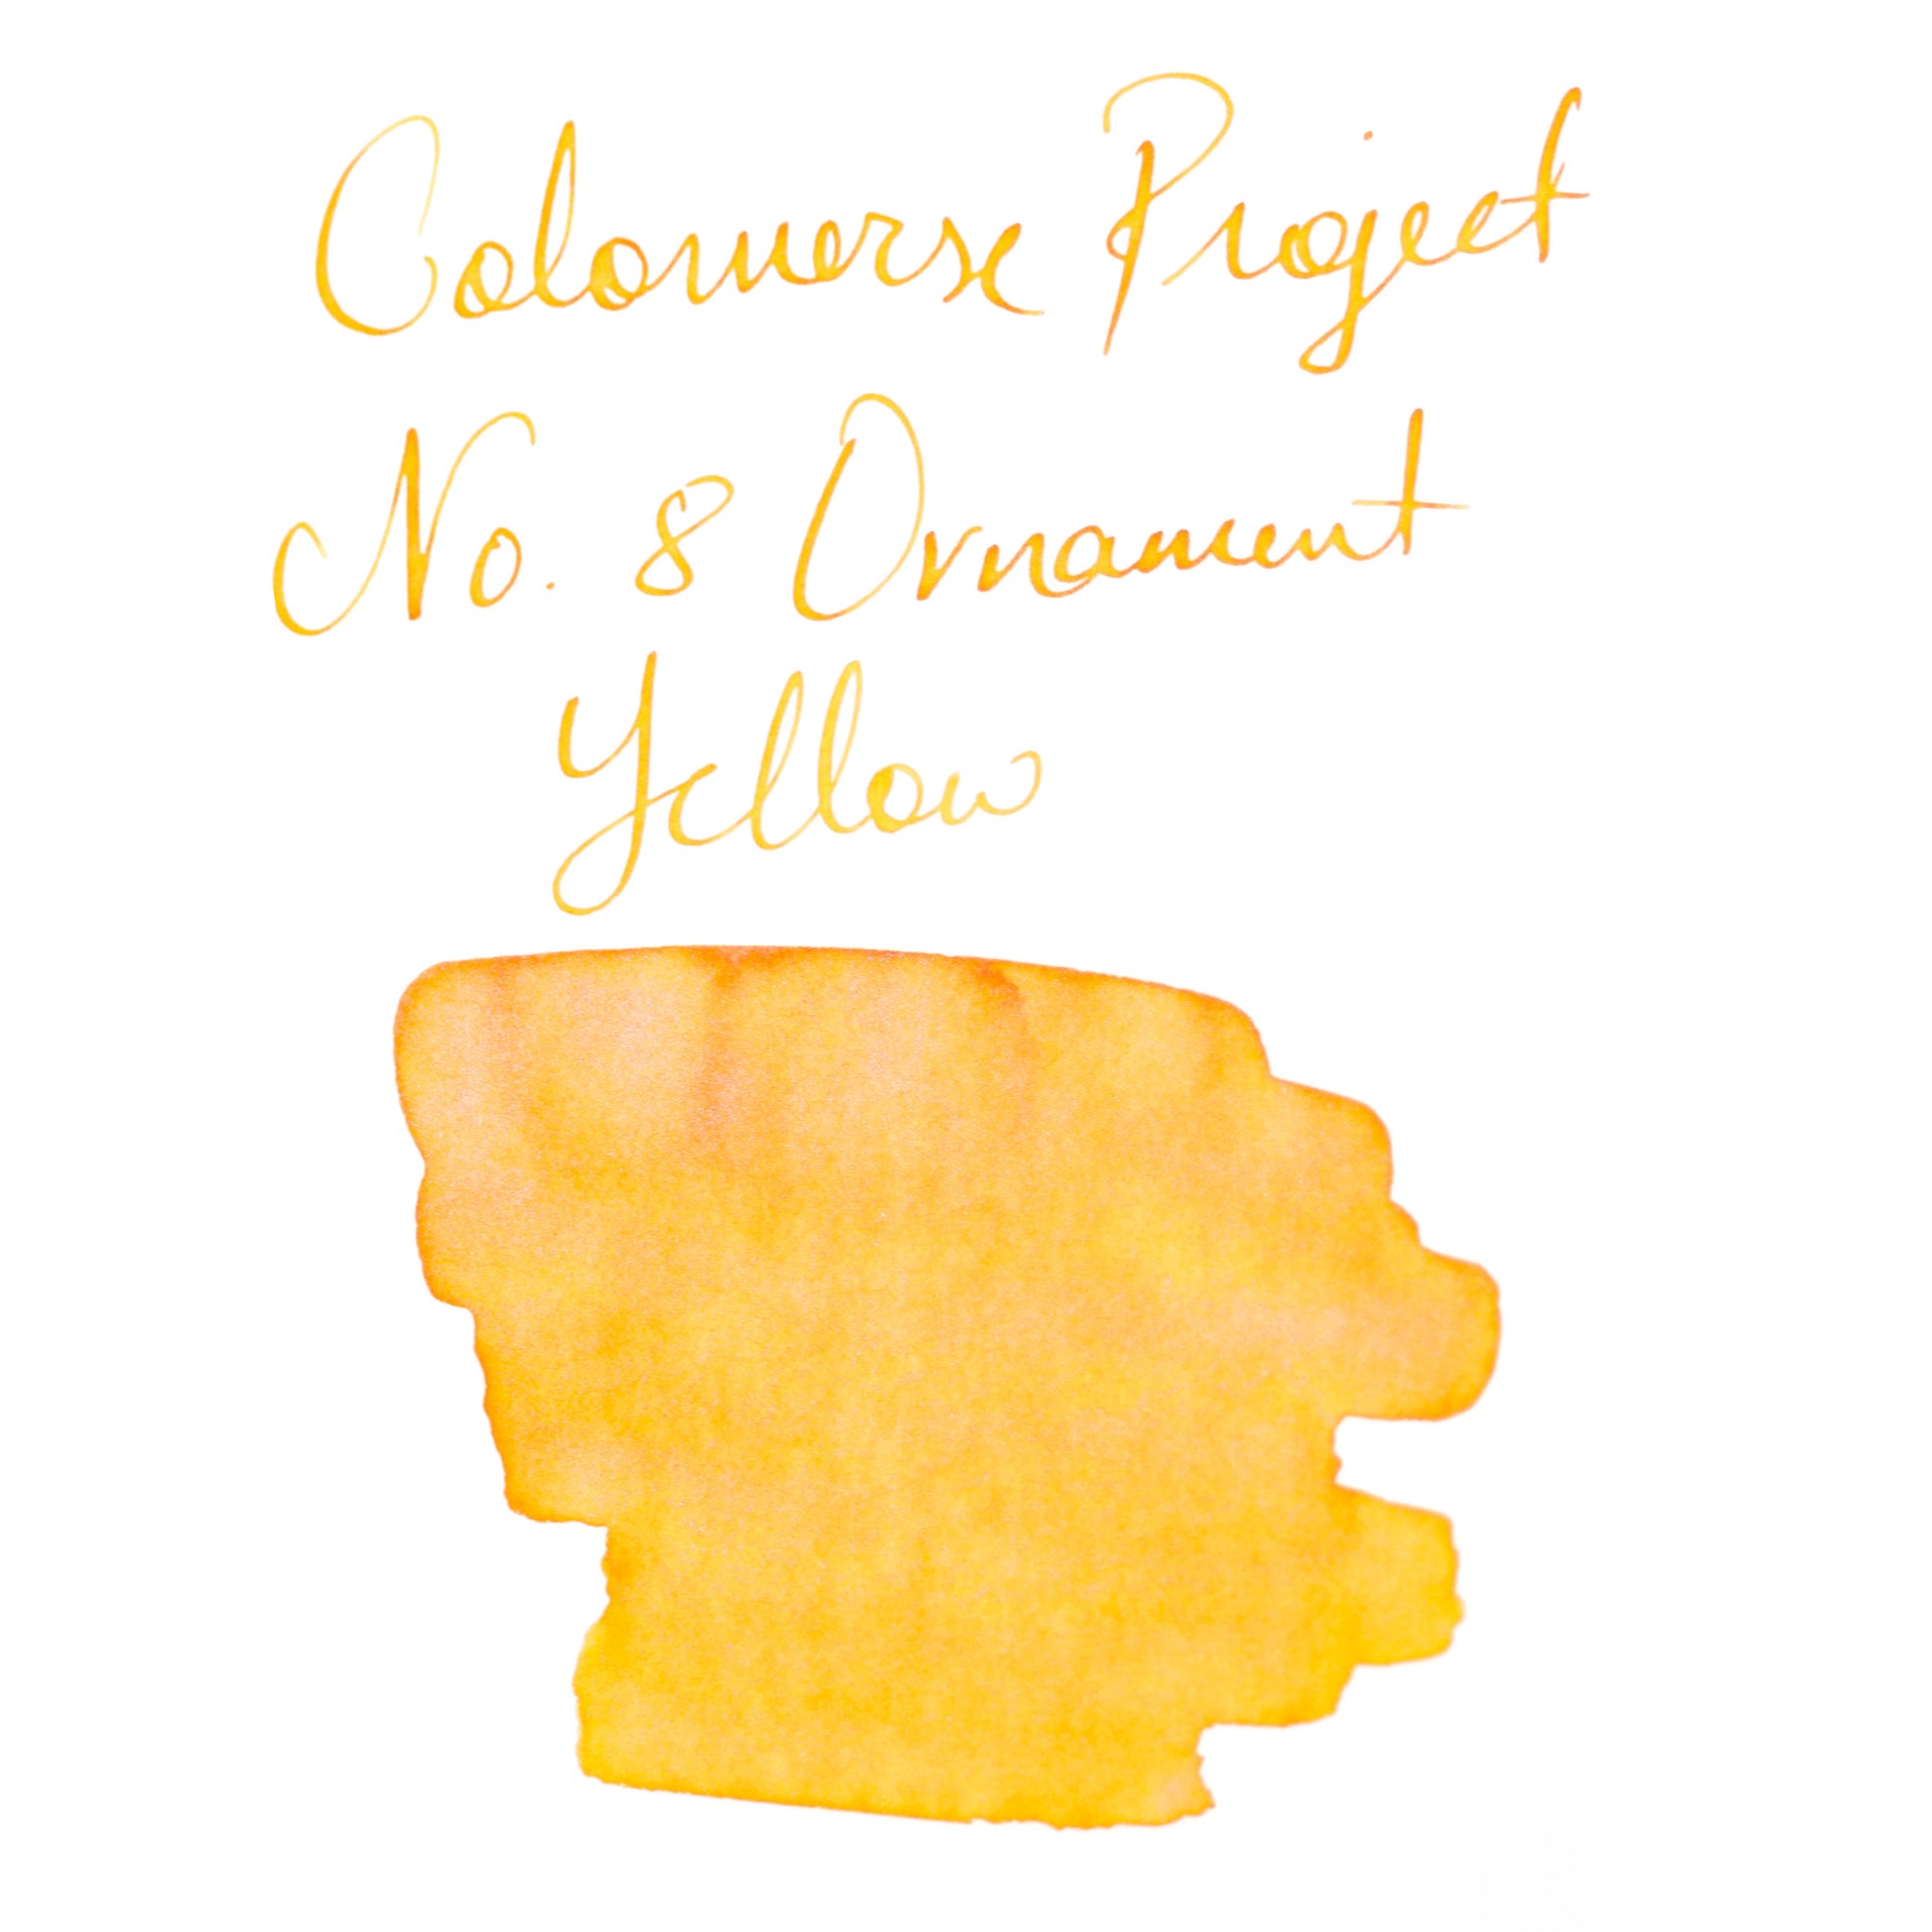 Colorverse Project
No. 8 Ornament
Yellow